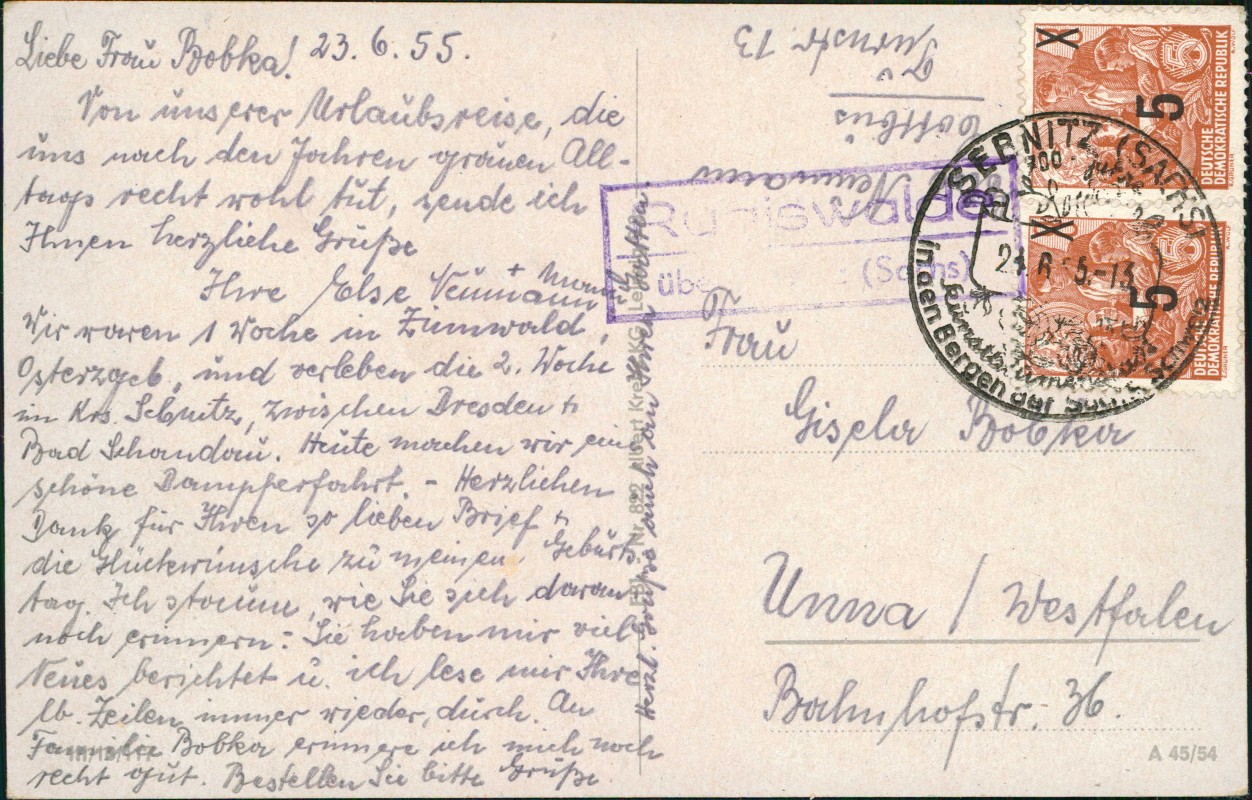 Liebe Frau Bobka! 23.6.55.
Von unserer Urlaubsreise, die
uns nach den Jahren grauen All-
tags recht wohl tut, sende ich
Ihnen herzliche Grüße
Ihre Else Neumann
Wir waren 1 Woche in Zinnwald,
Osterzgeb. und verleben die 2. Woche
im Krs. Sebnitz, zwischen Dresden +
Bad Schandau. Heute machen wir eine
schöne Dampferfahrt. - Herzlichen
Dank für Ihren so lieben Brief +
die Glückwünsche zu meinen Geburts
tag. Ich staune, wie Sie sich daran
noch erinnern. Sie haben mir viel
Neues berichtet u. ich lese mir Ihre
lb. Zeilen immer wieder durch. An
Familie Bobka erinnere ich mich noch
recht gut. Bestellen Sie bitte Grüße.
Herzl. Grüße auch an Ihren
Nr. 822 Albert
Neumann
Cottbus
Turnstr. 13
Rugiswalde
über (Sachs)
SEBNITZ (SACHS)
in den Bergen der
X 5
DEUTSCHE
DEMOKRATISCHE REPUBLIK
5
X 5
DEUTSCHE
DEMOKRATISCHE REPUBLIK
Frau
Gisela Bobka
Unna / Westfalen
Bahnhofstr. 36.
A 45/54